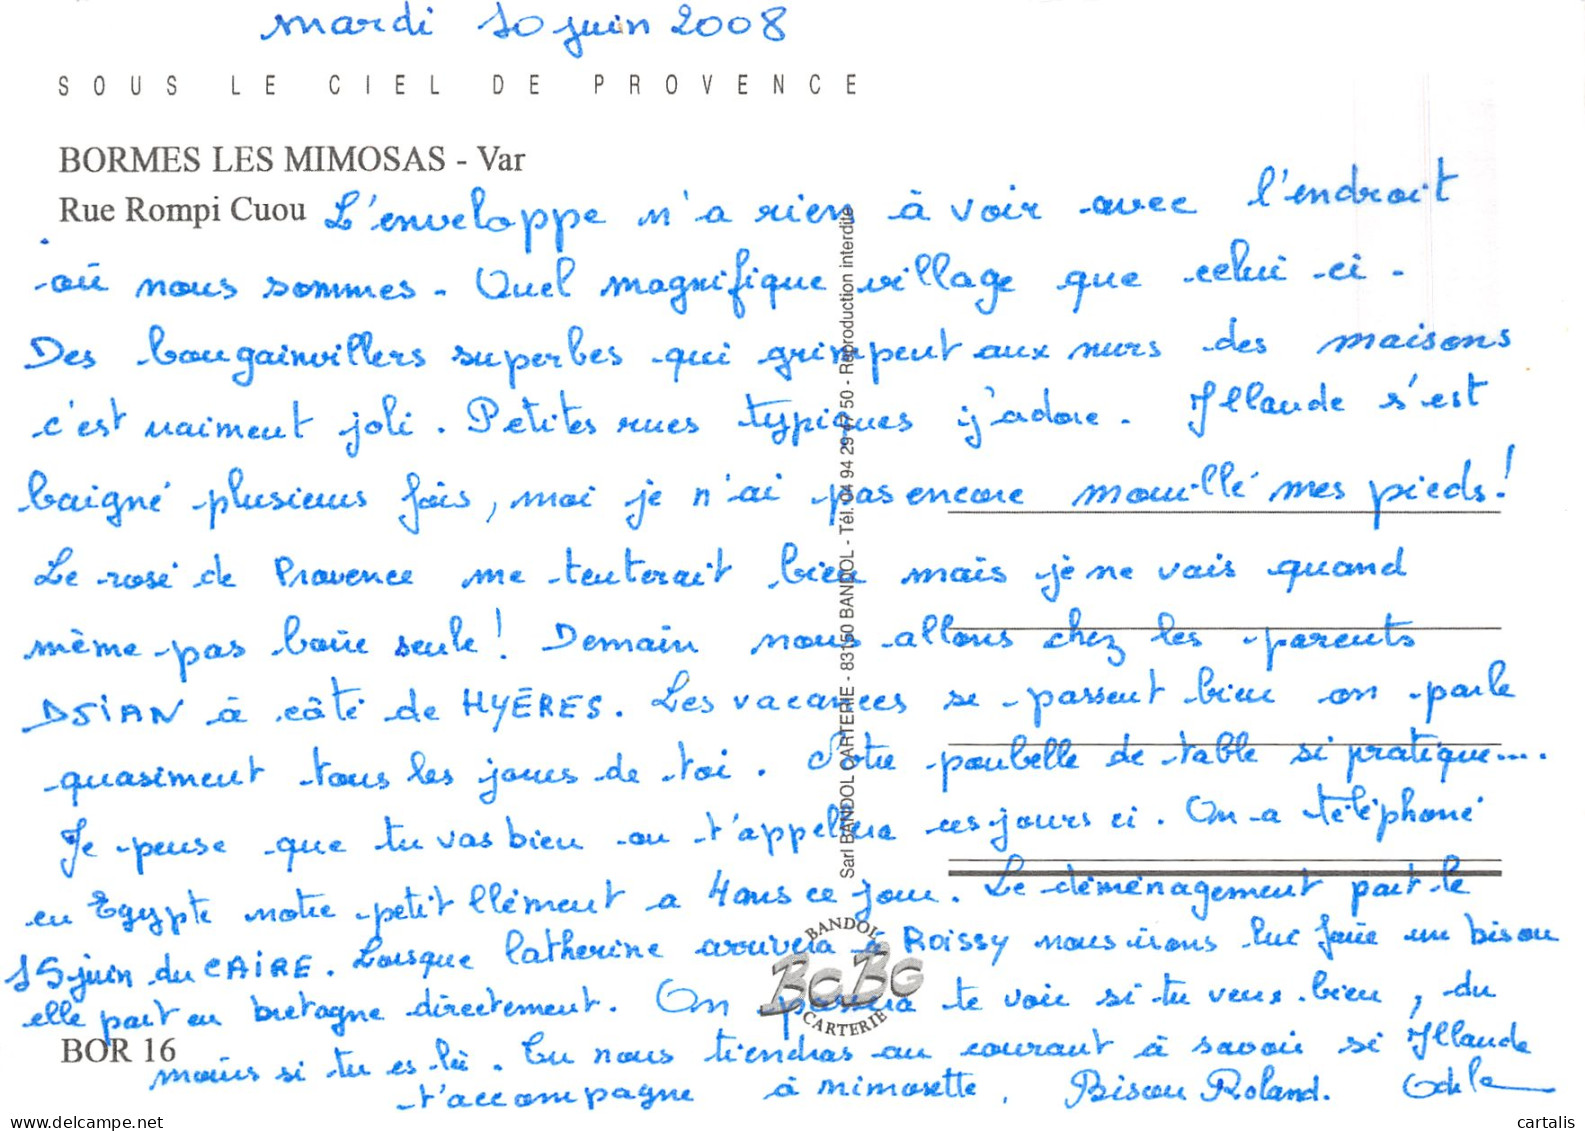 mardi 10 juin 2008
SOUS LE CIEL DE PROVENCE
BORMES LES MIMOSAS - Var
Rue Rompi Cuou
L'enveloppe n'a rien à voir avec l'endroit
où nous sommes. Quel magnifique village que celui ci.
Des bougainvillers superbes qui grimpent aux murs des maisons
c'est vraiment joli. Petites rues typiques j'adore. Yllaude s'est
baigné plusieurs fois, moi je n'ai pas encore mouillé mes pieds!
Le rosé de Provence me tenterait bien mais je ne vais quand
même pas boire seule! Demain nous allons chez les parents
DJIAN à côté de HYÈRES. Les vacances se passent bien on parle
quasiment tous les jours de toi. Notre poubelle de table si pratique....
Je pense que tu vas bien on t'appellera ces jours ci. On a téléphoné
en Egypte notre petit Clément a 4 ans ce jour. Le déménagement part le
15 juin du CAIRE. Lorsque Catherine arrivera à ROISSY nous irons lui faire un bisou
elle part en bretagne directement. On passera te voir si tu veux bien, du
moins si tu es là. Tu nous tiendras au courant à savoir si Yllaude
t'accompagne à mimosette. Bisou Roland. Odile
Sarl BANDOL CARTERIE - 83150 BANDOL - Tél. 04 94 29 47 50 - Reproduction interdite
BANDOL
BCBG
CARTERIE
BOR 16
delcampe.net
cartalis